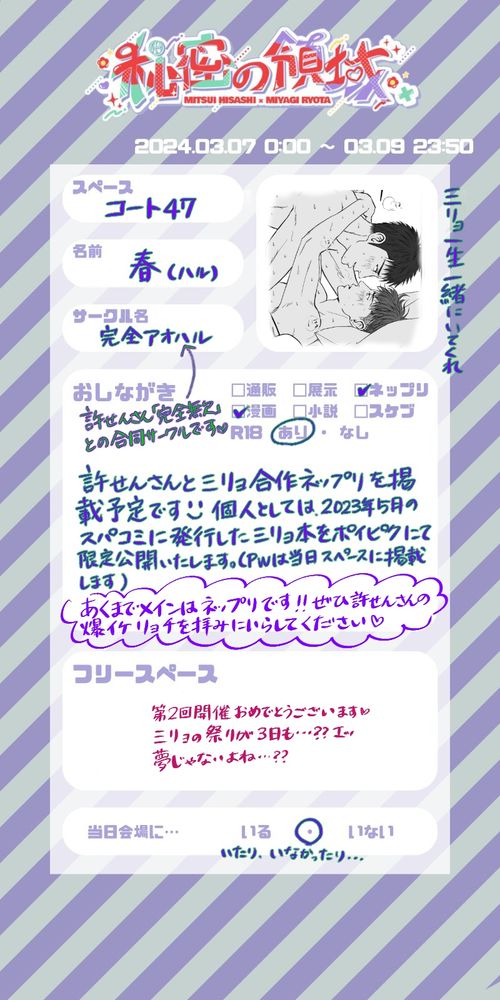 秘密の領域
MITSUI HISASHI × MIYAGI RYOTA
2024.03.07 0:00 ~ 03.09 23:50
スペース
コート47
名前
春(ハル)
サークル名
完全アオハル
三リョ一生一緒にいてくれ
おしながき
□通販 □展示 ☑ネップリ
☑漫画 □小説 □スケブ
R18 あり・なし
許せんさん「完全無欠」
との合同サークルです♡
許せんさんと三リョ合作ネップリを掲
載予定です 個人としては、2023年5月の
スパコミに発行した三リョ本をポイピクにて
限定公開いたします。(PWは当日スペースに掲載
します)
あくまでメインはネップリです!!ぜひ許せんさんの
爆イケリョチを拝みにいらしてください♡
フリースペース
第2回開催おめでとうございます♡
三リョの祭りが3日も…??エッ
夢じゃないよね…??
当日会場に… いる ・ いない
いたり、いなかったり…